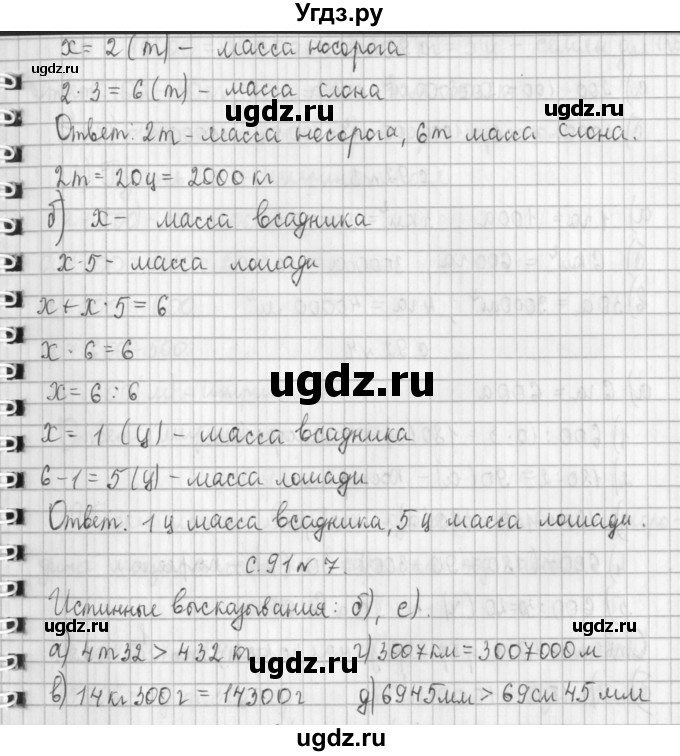 Угдз.ру
x = 2 (т) - масса носорога
ugdz.ru
2 · 3 = 6 (т) - масса слона
ugdz.ru
ugdz.ru
Ответ: 2т - масса носорога, 6т масса слона.
2т = 20ц = 2000 кг
б) x - масса всадника
ugdz.ru
x · 5 - масса лошади
x + x · 5 = 6
x · 6 = 6
ugdz.ru
x = 6 : 6
x = 1 (ц) - масса всадника
6 - 1 = 5 (ц) - масса лошади
Ответ: 1 ц масса всадника, 5 ц масса лошади.
с. 91 № 7.
Истинные высказывания: б), е).
ugdz.ru
ugdz.ru
ugdz.ru
а) 4 т 32 > 432 кг г) 3007 км = 3007000 м
в) 14 кг 300 г = 14300 г д) 6945 мм > 69 см 45 мм
ugdz.ru
ugdz.ru